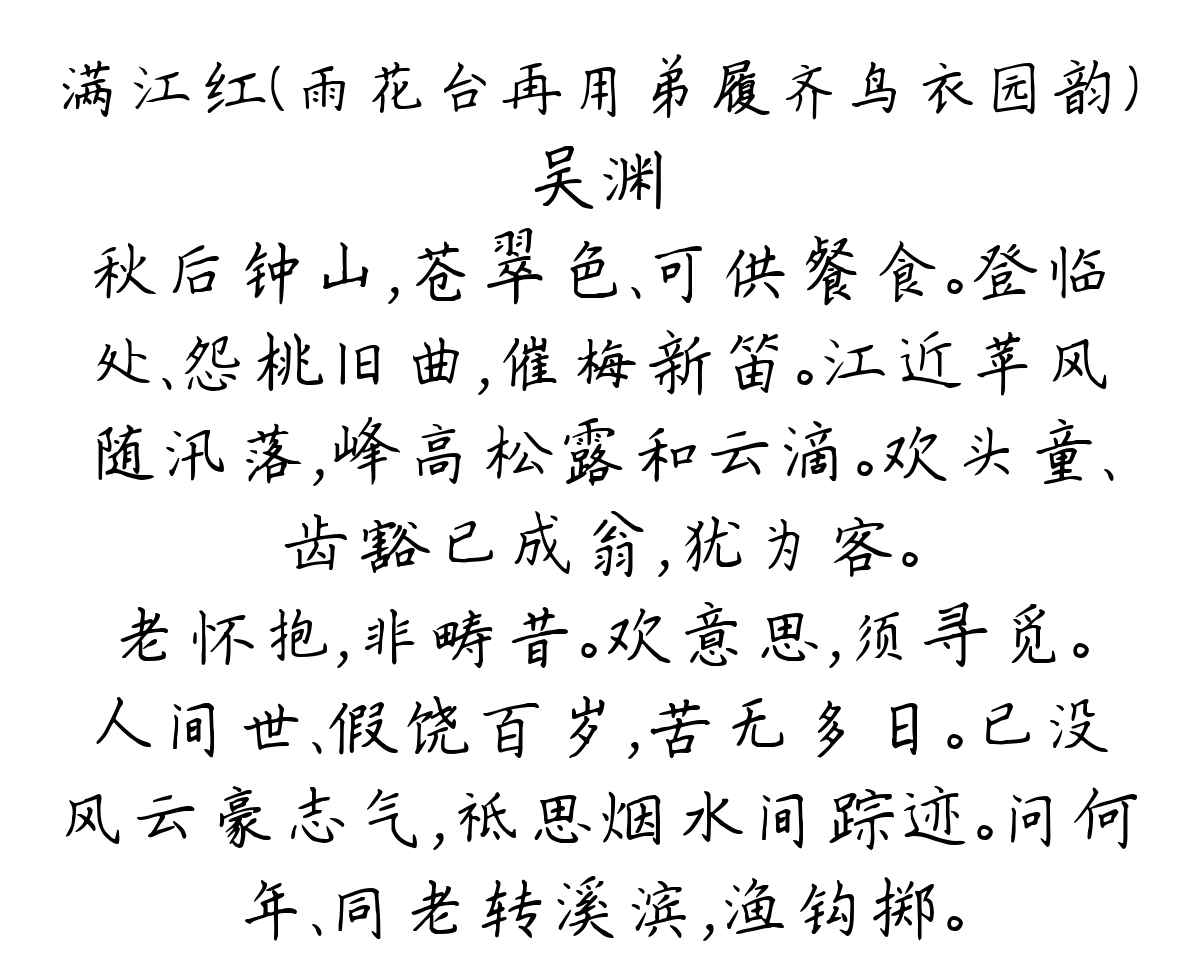 满江红(雨花台再用弟履齐鸟衣园韵)
吴渊
秋后钟山,苍翠色、可供餐食。登临
处、怨桃旧曲,催梅新笛。江近苹风
随汛落,峰高松露和云滴。欢头童、
齿豁已成翁,犹为客。
老怀抱,非畴昔。欢意思,须寻觅。
人间世、假饶百岁,苦无多日。已没
风云豪志气,祗思烟水间踪迹。问何
年、同老转溪滨,渔钩掷。